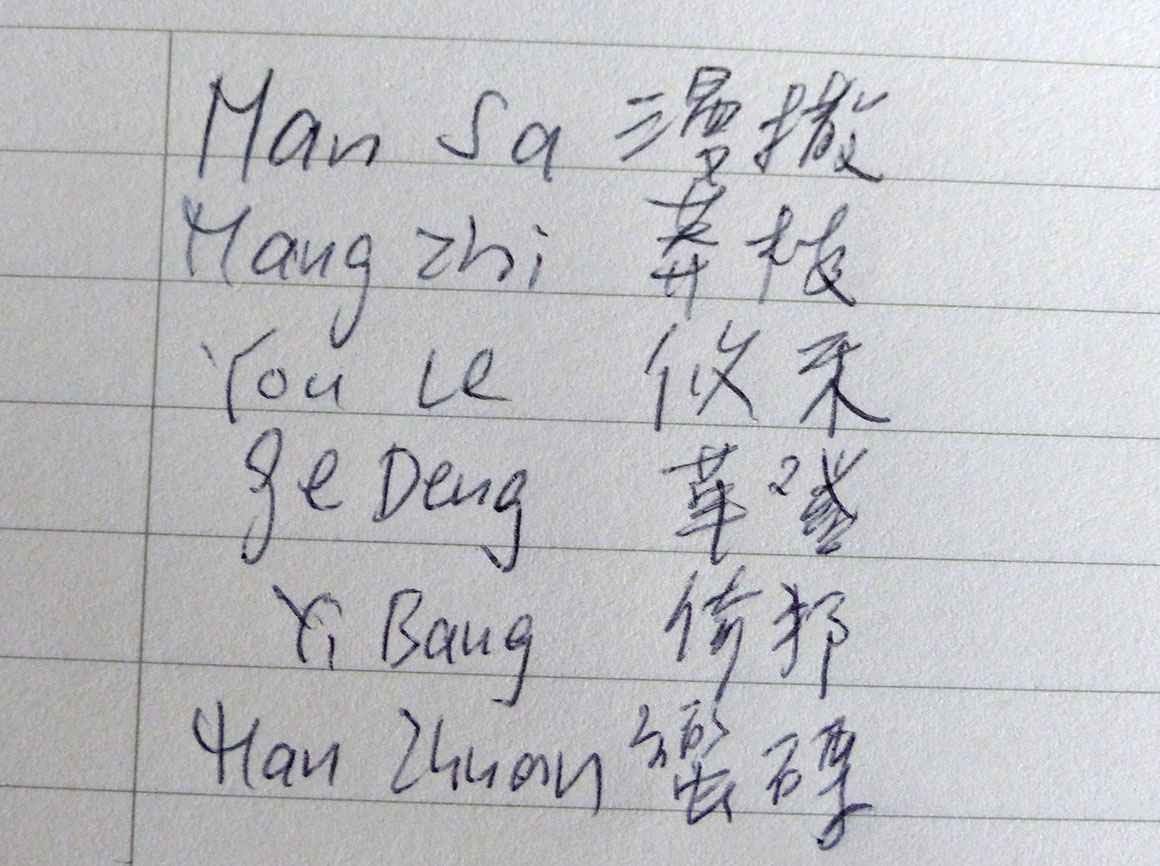 Man Sa 漫撒
Mang Zhi 莽枝
You Le 攸乐
Ge Deng 革登
Yi Bang 倚邦
Man Zhuan 蠻磚